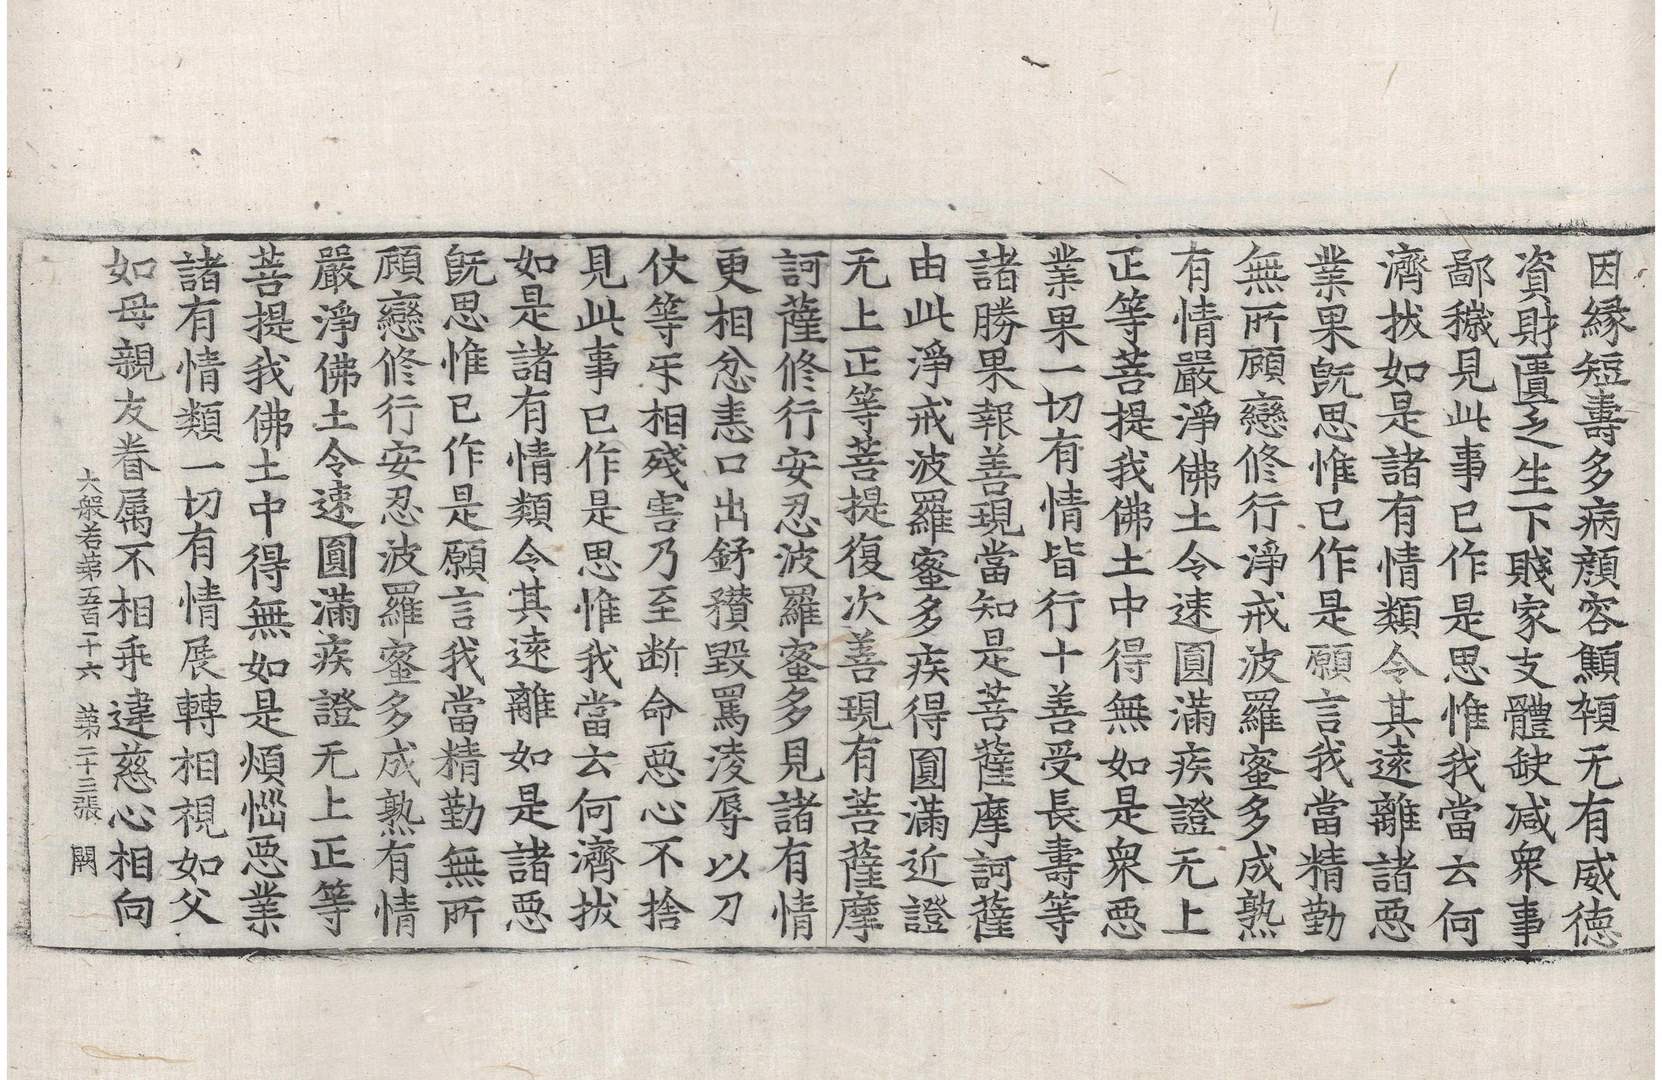 因緣短壽多病顔容顦顇无有威德
資財匱乏生下賤家支體缺减衆事
鄙穢見此事已作是思惟我當云何
濟拔如是諸有情類令其遠離諸惡
業果旣思惟已作是願言我當精勤
無所顧戀修行淨戒波羅蜜多成熟
有情嚴淨佛土令速圓滿疾證无上
正等菩提我佛土中得無如是衆惡
業果一切有情皆行十善受長壽等
諸勝果報善現當知是菩薩摩訶薩
由此淨戒波羅蜜多疾得圓滿近證
无上正等菩提復次善現有菩薩摩
訶薩修行安忍波羅蜜多見諸有情
更相忿恚口出鉾䂎毀罵淩辱以刀
仗等㸦相殘害乃至断命惡心不捨
見此事已作是思惟我當云何濟拔
如是諸有情類令其遠離如是諸惡
旣思惟已作是願言我當精勤無所
顧戀修行安忍波羅蜜多成熟有情
嚴淨佛土令速圓滿疾證无上正等
菩提我佛土中得無如是煩惱惡業
諸有情類一切有情展轉相視如父
如母親友眷属不相乖違慈心相向
大般若苐五百二十六 苐二十三張 闕